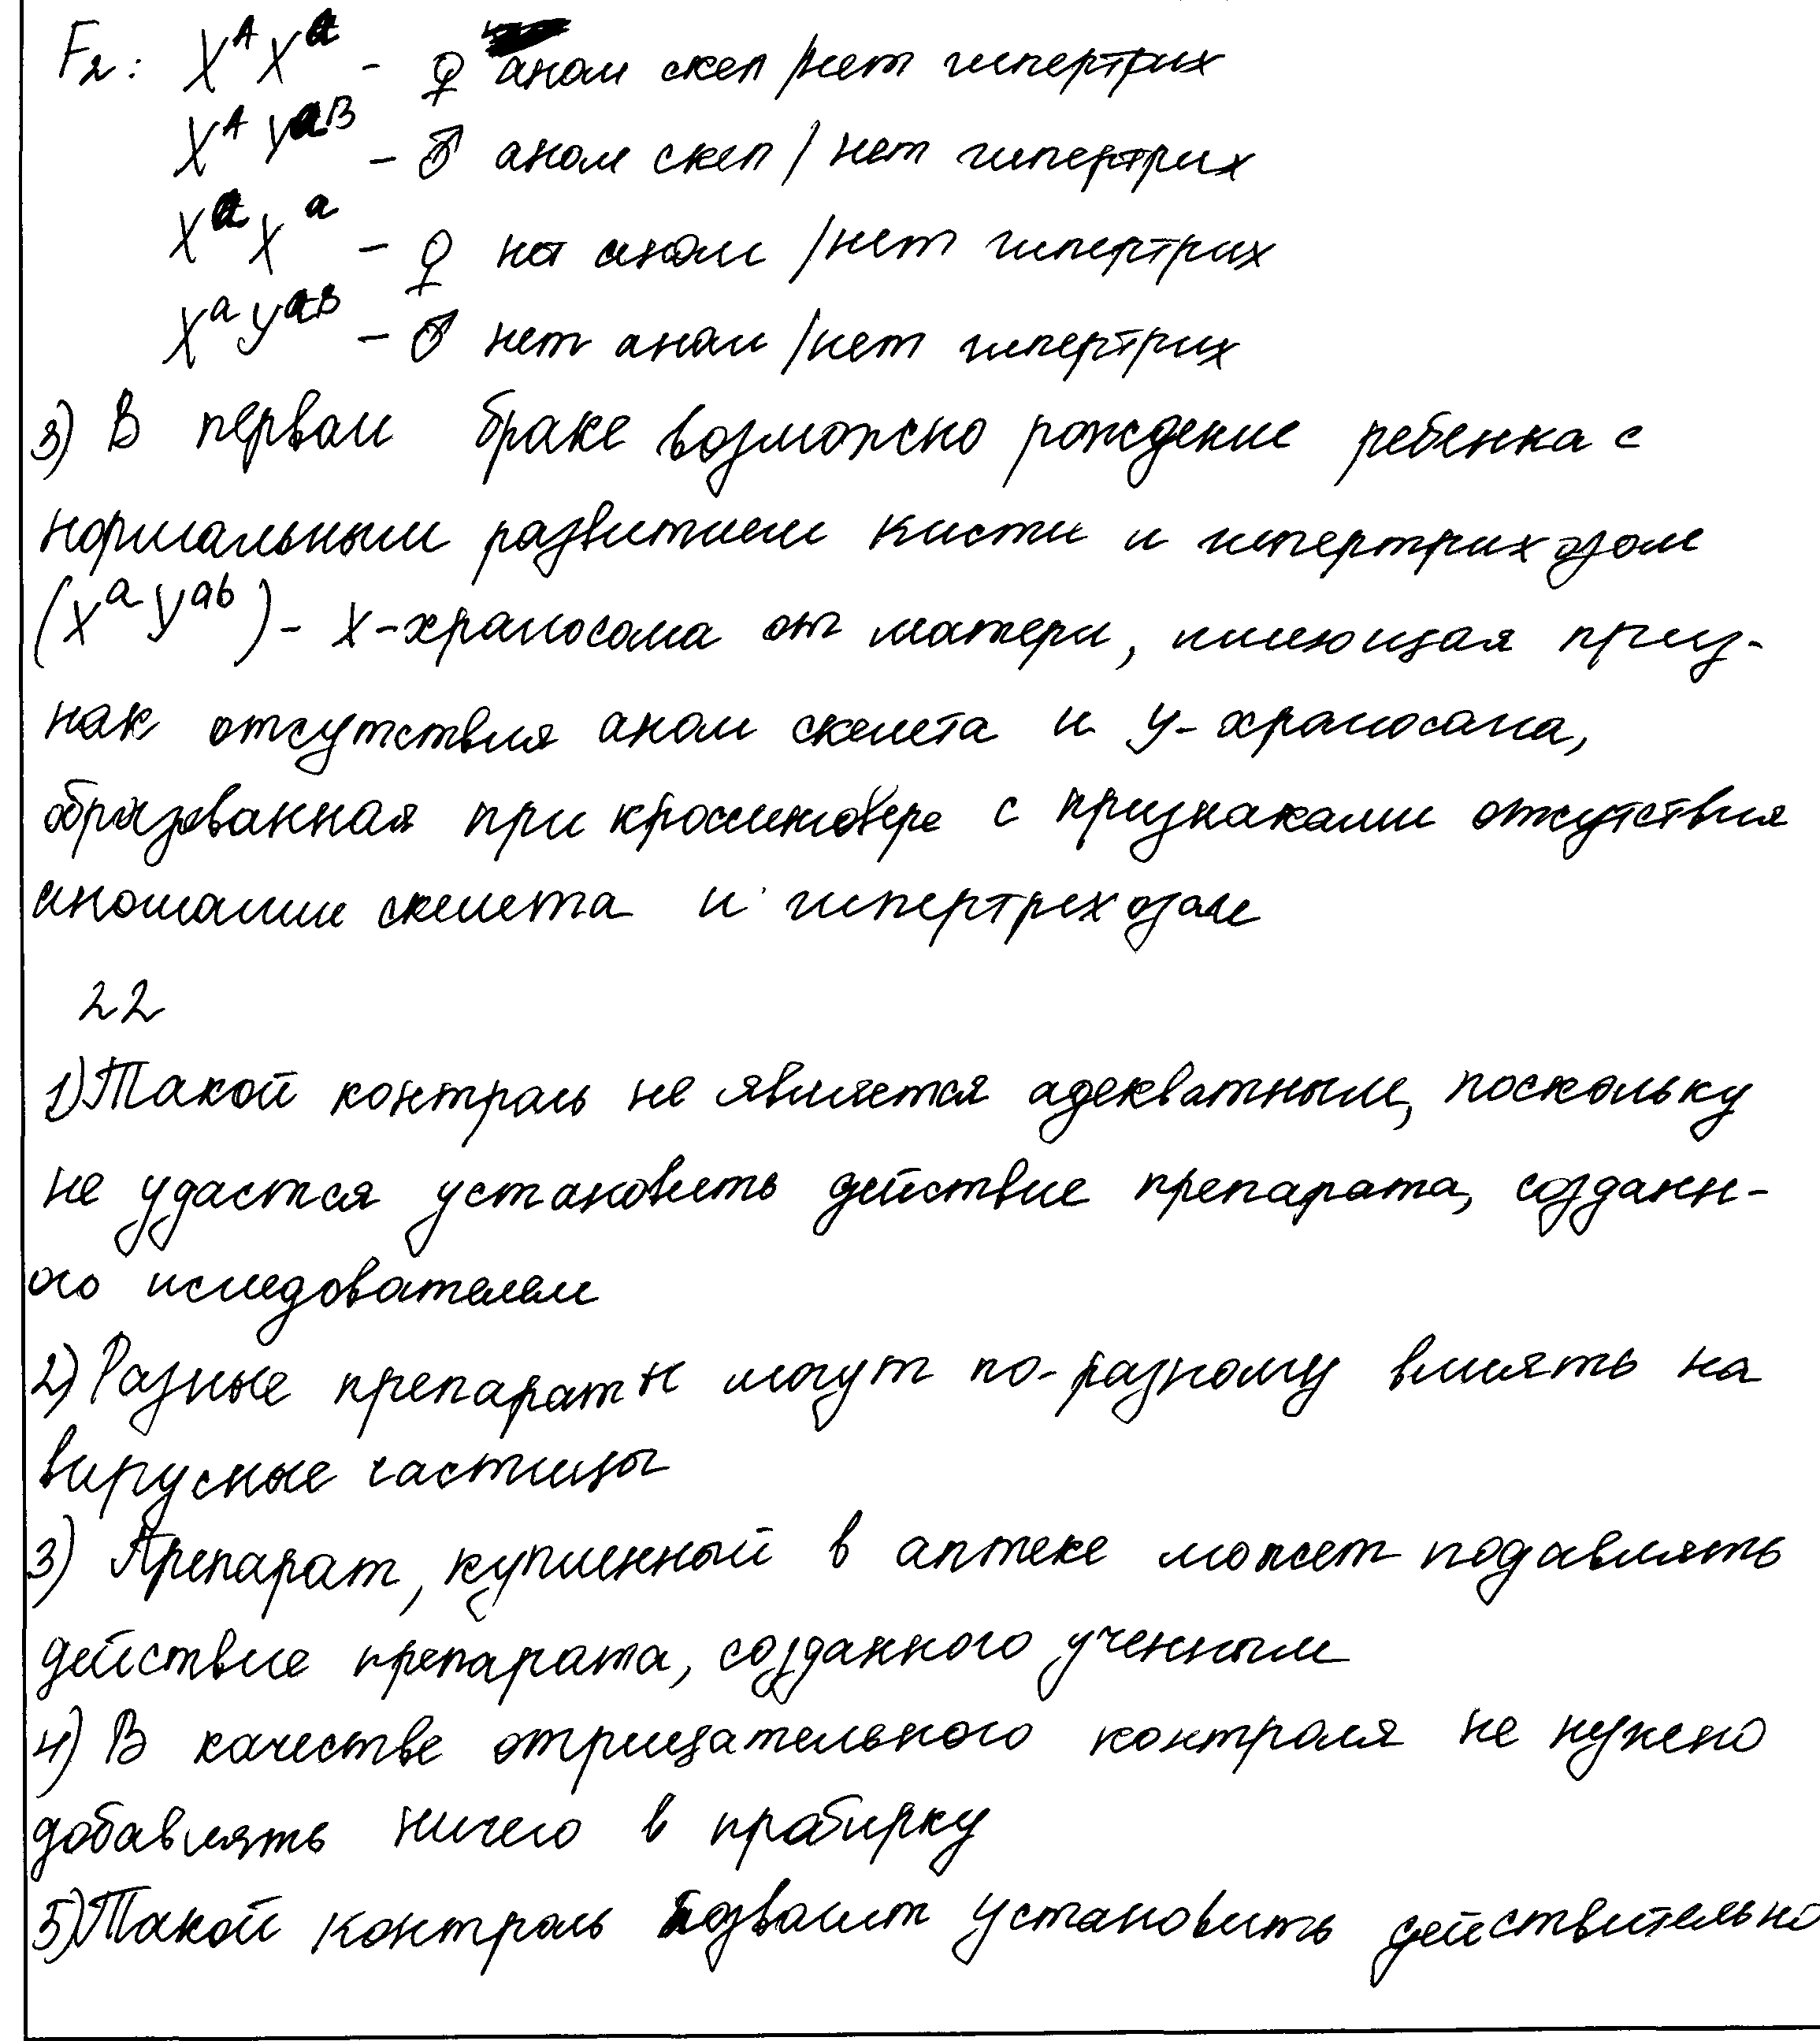 F₂: Xᴬ Xᵃ - ♀ аном скел / нет гипертрих
Xᴬ Yᵃᴮ - ♂ аном скел / нет гипертрих
Xᵃ Xᵃ - ♀ нет аном / нет гипертрих
Xᵃ Yᵃᴮ - ♂ нет аном / нет гипертрих
3) В первом браке возможно рождение ребенка с
нормальным развитием кисти и гипертрихозом
(Xᵃ Yᵃᵇ) - X-хромосома от матери, имеющая приз-
нак отсутствия аном скелета и У-хромосома,
образованная при кроссинговере с признаками отсутствия
аномалии скелета и гипертрехозом
22
1) Такой контроль не является адекватным, поскольку
не удастся установить действие препарата, созданн-
ого иследователем
2) Разные препараты могут по-разному влиять на
вирусные частицы
3) Препарат, купленный в аптеке может подавлять
действие препарата, созданного ученным
4) В качестве отрицательного контроля не нужно
добавлять ничего в пробирку
5) Такой контроль позволит установить действительно